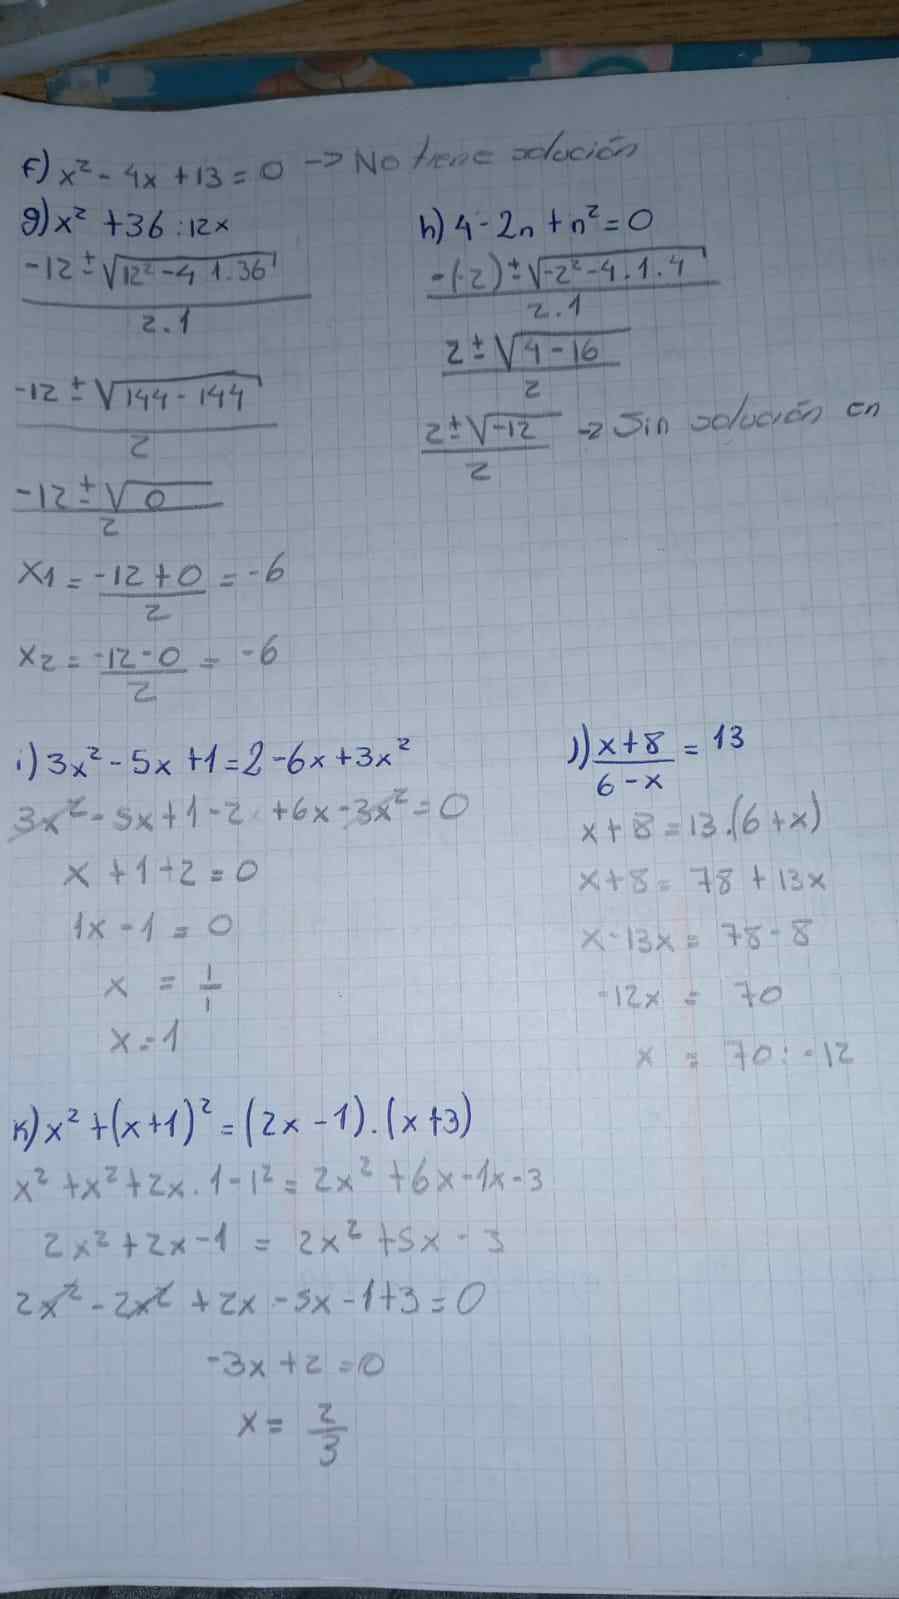 f) x² - 4x + 13 = 0 -> No tiene solución
g) x² + 36 : 12x
-12 ± √(12² - 4 1 . 36) / 2 . 1
-12 ± √(144 - 144) / 2
-12 ± √0 / 2
x1 = (-12 + 0) / 2 = -6
x2 = (-12 - 0) / 2 = -6
h) 4 - 2n + n² = 0
-(-2) ± √(-2² - 4 . 1 . 4) / 2 . 1
2 ± √(4 - 16) / 2
2 ± √-12 / 2 -> Sin solución en
i) 3x² - 5x + 1 = 2 - 6x + 3x²
3x² - 5x + 1 - 2 + 6x - 3x² = 0
x + 1 - 2 = 0
1x - 1 = 0
x = 1/1
x = 1
j) (x + 8) / (6 - x) = 13
x + 8 = 13 . (6 + x)
x + 8 = 78 + 13x
x - 13x = 78 - 8
-12x = 70
x = 70 : -12
k) x² + (x + 1)² = (2x - 1) . (x + 3)
x² + x² + 2x . 1 - 1² = 2x² + 6x - 1x - 3
2x² + 2x - 1 = 2x² + 5x - 3
2x² - 2x² + 2x - 5x - 1 + 3 = 0
-3x + 2 = 0
x = 2/3